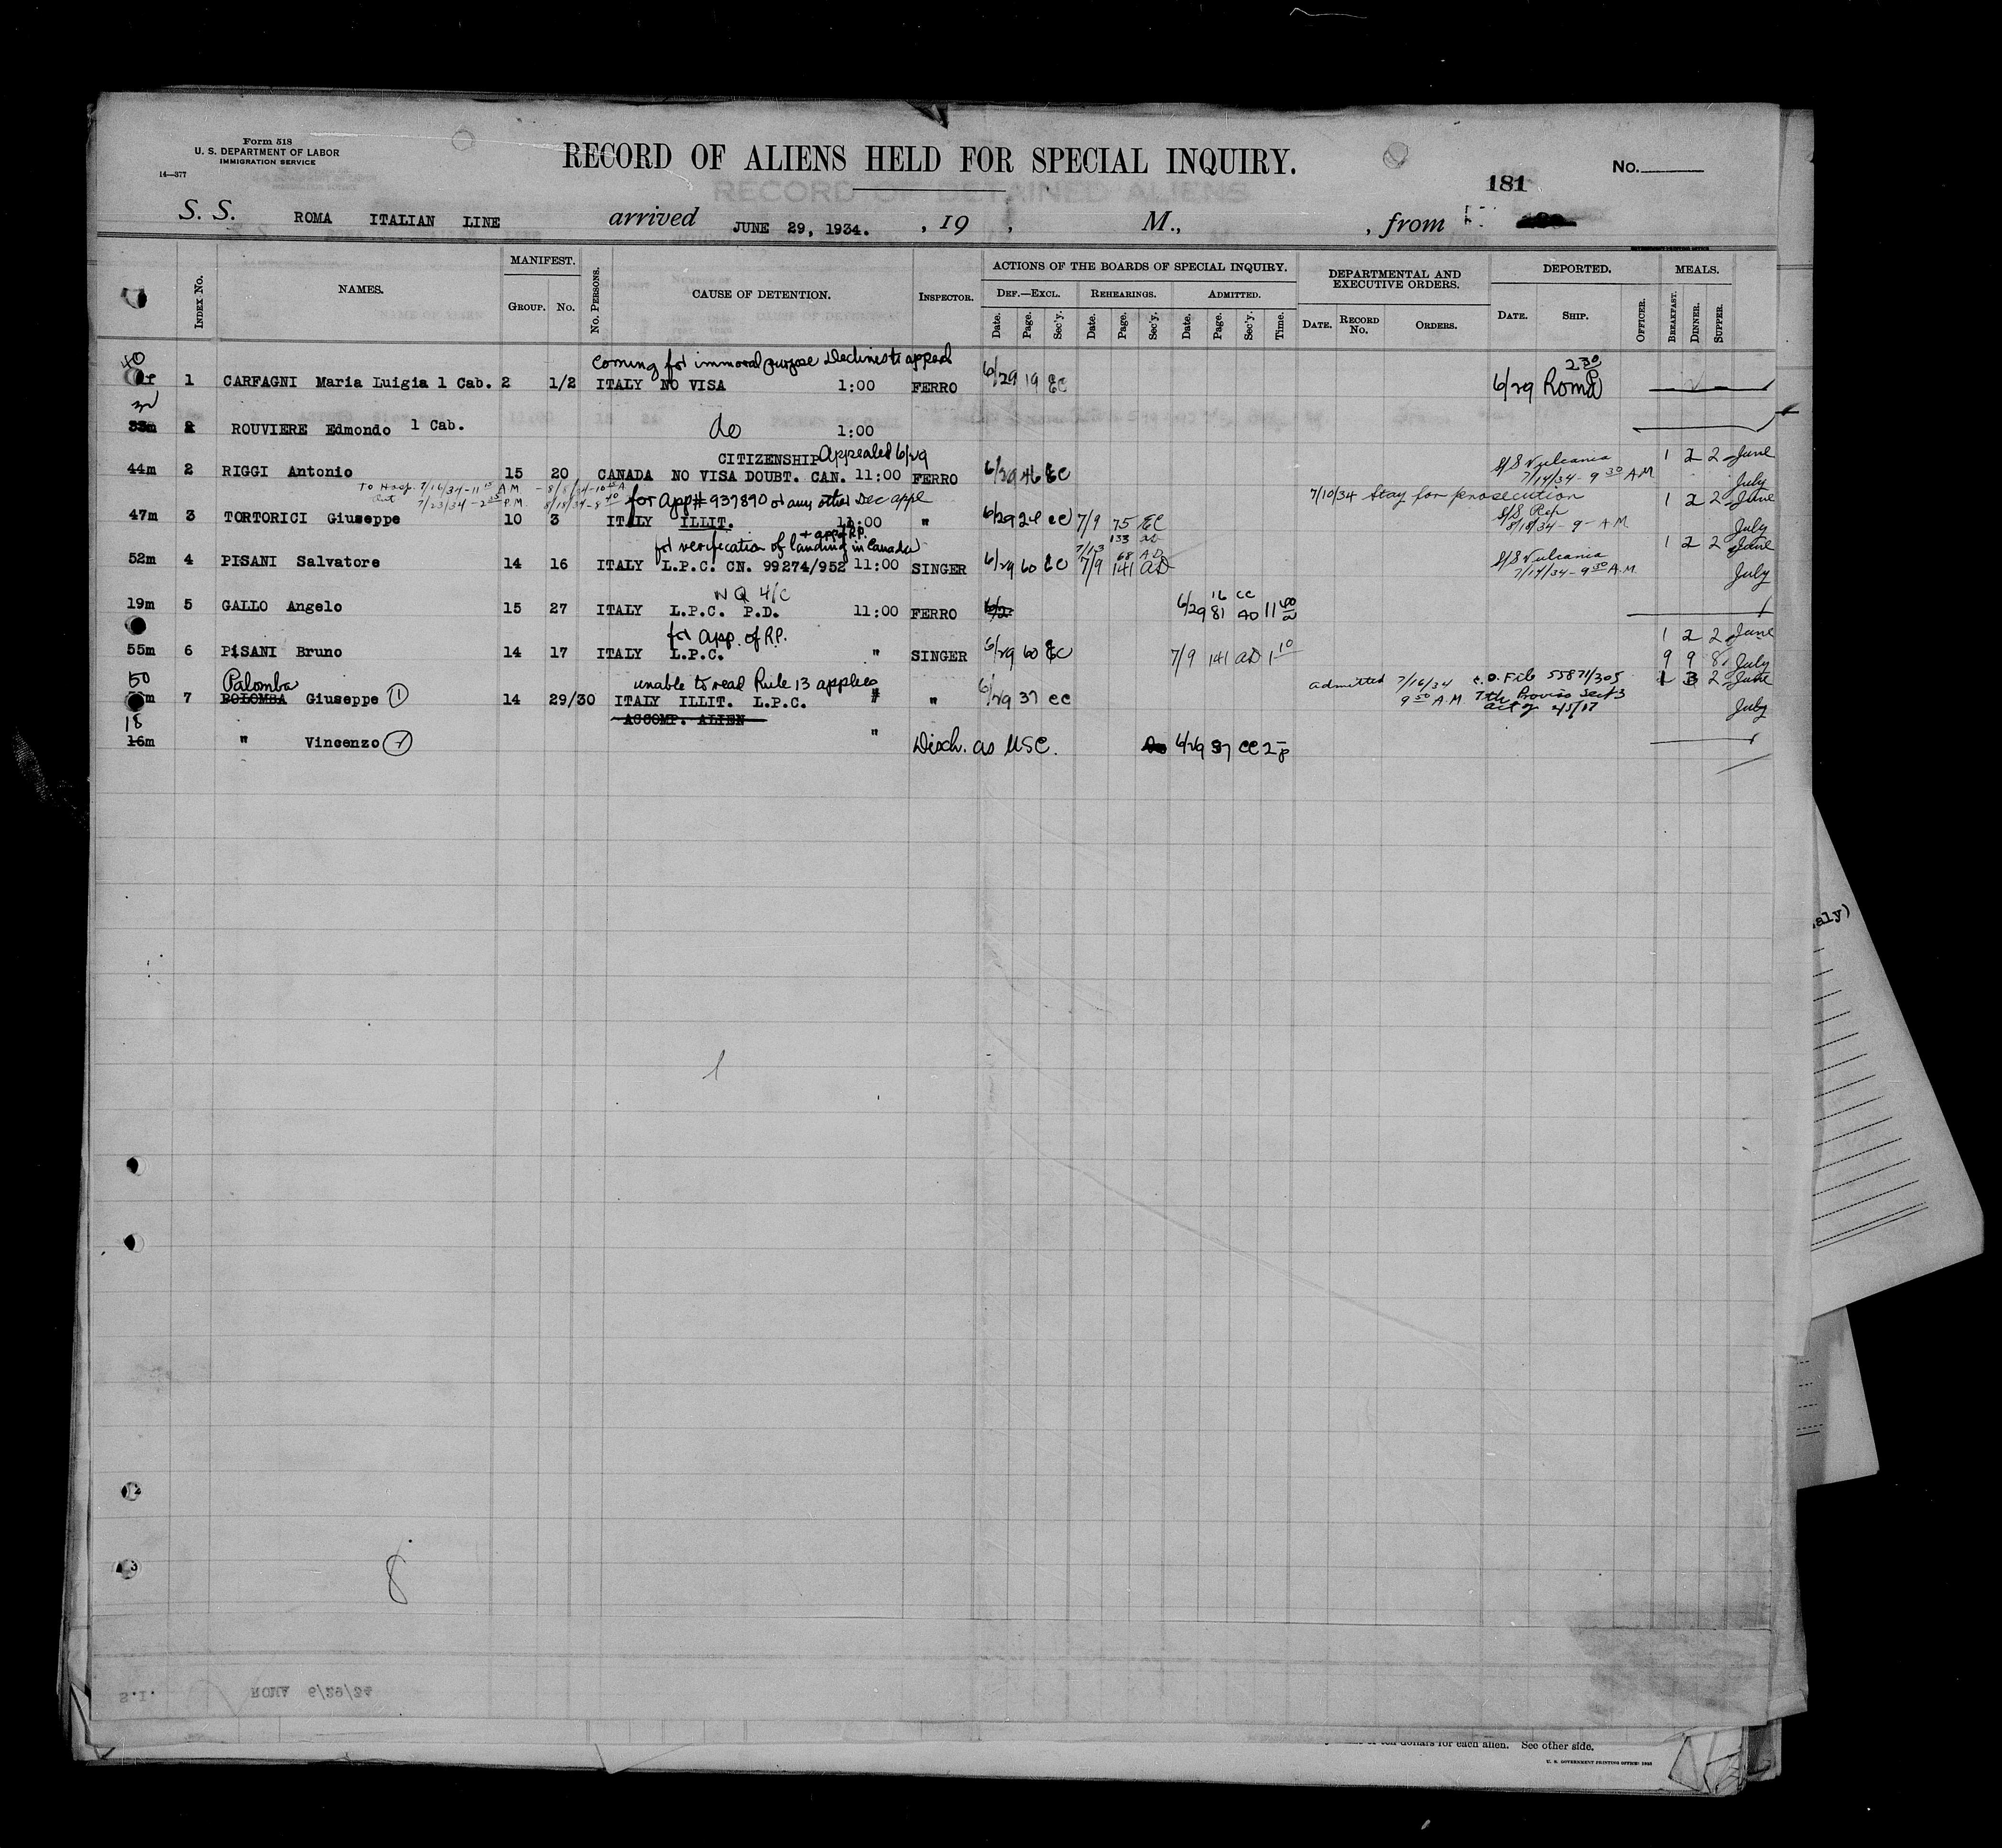 Form 518
U. S. DEPARTMENT OF LABOR
IMMIGRATION SERVICE
14—377
RECORD OF ALIENS HELD FOR SPECIAL INQUIRY.
No.
RECORD OF DETAINED ALIENS
181
S. S. ROMA ITALIAN LINE arrived JUNE 29, 1934. , 19 , M., , from
INDEX No. NAMES. MANIFEST. GROUP. No. No. PERSONS. CAUSE OF DETENTION. INSPECTOR. ACTIONS OF THE BOARDS OF SPECIAL INQUIRY. DEPARTMENTAL AND EXECUTIVE ORDERS. DEPORTED. MEALS.
DEF.—EXCL. REHEARINGS. ADMITTED.
Date. Page. Sec'y. Date. Page. Sec'y. Date. Page. Sec'y. Time. DATE. RECORD No. ORDERS. DATE. SHIP. OFFICER. BREAKFAST. DINNER. SUPPER.
coming for immoral purpose Declines to appeal 2 30
1 CARFAGNI Maria Luigia 1 Cab. 2 1/2 ITALY NO VISA 1:00 FERRO 6/29 19 EC 6/29 Roma
33m 2 ROUVIERE Edmondo 1 Cab. do 1:00
CITIZENSHIP Appealed 6/29 S/S Vulcania 1 2 2 June
44m 2 RIGGI Antonio 15 20 CANADA NO VISA DOUBT. CAN. 11:00 FERRO 6/29 46 EC 7/14/34 - 9 30 A.M July
To Hosp. 7/16/34 - 11 15 A M - 8/8/34 - 10 15 A
out 7/23/34 - 2 25 P.M. 8/18/34 - 8 40
for App # 937890 or any other Dec appl 7/10/34 Stay for prosecution 1 2 2 June
47m 3 TORTORICI Giuseppe 10 3 ITALY ILLIT. 11:00 " 6/29 24 EC 7/9 75 EC S/S Rex 8/18/34 - 9 - A M July
+ app of RP. 133 AD
for verification of landing in Canada 7/13 68 AD S/S Vulcania 1 2 2 June
52m 4 PISANI Salvatore 14 16 ITALY L.P.C. CN. 99274/952 11:00 SINGER 6/29 60 EC 7/9 141 AD 7/14/34 - 9 30 A.M. July
N Q 4/C 16 CC
19m 5 GALLO Angelo 15 27 ITALY L.P.C. P.D. 11:00 FERRO 6/29 81 AD 11 40
for App. of R.P. 1 2 2 June
55m 6 PISANI Bruno 14 17 ITALY L.P.C. " SINGER 6/29 60 EC 7/9 141 AD 1 10 9 9 8 July
50 Palomba unable to read Rule 13 applies admitted 7/16/34 C.O. File 55871/305 1 3 2 June
7 BOLOMBA Giuseppe 1 14 29/30 ITALY ILLIT. L.P.C. " " 6/29 37 EC 9 50 A.M. 7th Proviso Sect 3 act of 2/5/17 July
18 ACCOMP. ALIEN
16m " Vincenzo 1 " Disch. as USC. 6/29 37 CC 2 P
8
S.I. ROMA 6/29/34
aly)
of ten dollars for each alien. See other side.
U. S. GOVERNMENT PRINTING OFFICE: